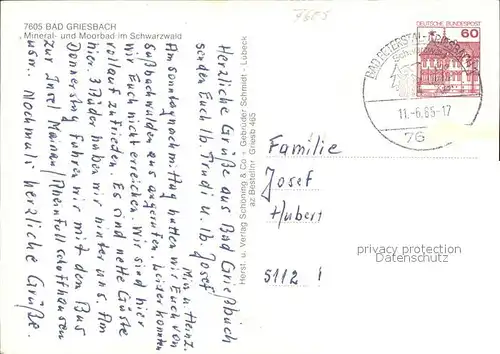 7605
7605 BAD GRIESBACH
Mineral- und Moorbad im Schwarzwald
Herzliche Grüße aus Bad Grießbach
senden Euch lb. Trudi u. lb. Josef
Min u. Heinz.
Am Sonntagnachmittag hatten wir Euch von
Saßbachwalden aus angerufen. Leider konnten
wir Euch nicht erreichen. Wir sind hier
vollauf zufrieden. Es sind nette Gäste
hier. 3 Bäder haben wir hinter uns. Am
Donnerstag fuhren wir mit dem Bus
zur Insel Mainau/Rheinfall Schaffhausen
usw. Nochmals herzliche Grüße.
Herst. u. Verlag Schöning & Co · Gebrüder Schmidt · Lübeck
az Bestellnr. Griesb 465
DEUTSCHE BUNDESPOST
60
BAD PETERSTAL-GRIESBACH
11.-6.85-17
76
Familie
Josef
Hubert
5112 !
privacy protection
Datenschutz